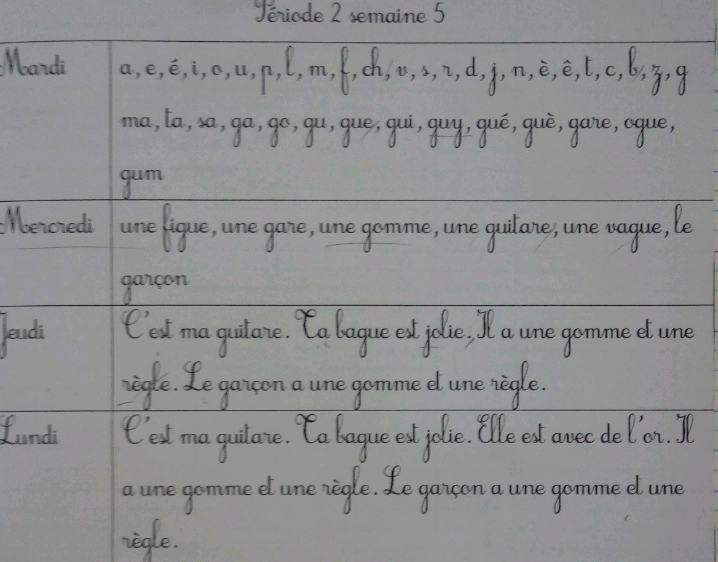 Période 2 semaine 5
Mardi a, e, é, i, o, u, p, l, m, f, ch, v, s, r, d, j, n, è, ê, t, c, b, z, g
ma, ta, sa, ga, go, gu, gue, gui, guy, gué, guè, gare, ogue,
gum
Mercredi une figue, une gare, une gomme, une guitare, une vague, le
garçon
Jeudi C'est ma guitare. Ta bague est jolie. Il a une gomme et une
règle. Le garçon a une gomme et une règle.
Lundi C'est ma guitare. Ta bague est jolie. Elle est avec de l'or. Il
a une gomme et une règle. Le garçon a une gomme et une
règle.